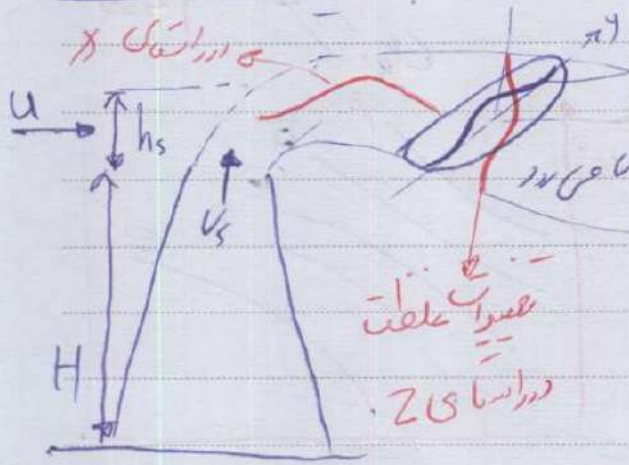 در راستای X
y
U
hs
Vs
تغییرات غلظت
در راستای Z
H